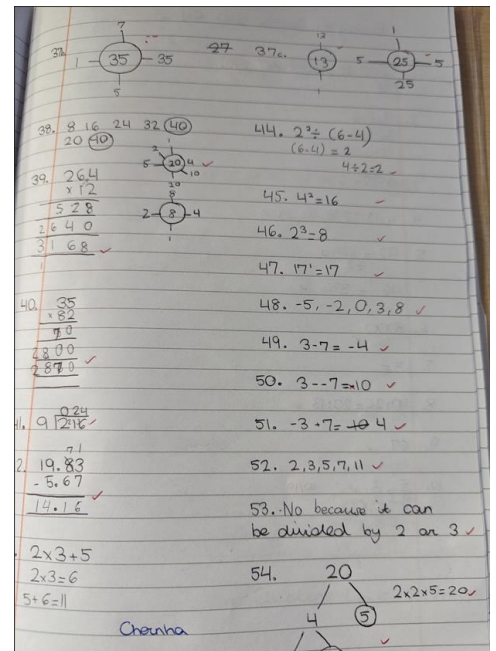 7
37. 1 35 35
5
27
37c. 13
13
1
1
5 25 5
25
38. 8 16 24 32 40
20 40
1
2
5 20 4
10
20
39. 264
x12
528
2640
3168
1
8
2 8 4
1
40. 35
x82
70
2800
2870
41. 9 2.16
0.24
71
42. 19.83
- 5.67
14.16
2x3+5
2x3=6
5+6=11
Chernha
44. 2²÷(6-4)
(6-4)=2
4÷2=2
45. 4²=16
46. 2³=8
47. 17¹=17
48. -5, -2, 0, 3, 8
49. 3-7= -4
50. 3--7=10
51. -3+7= 10 4
52. 2,3,5,7,11
53. No because it can
be divided by 2 or 3
54. 20
4 5
2x2x5=20